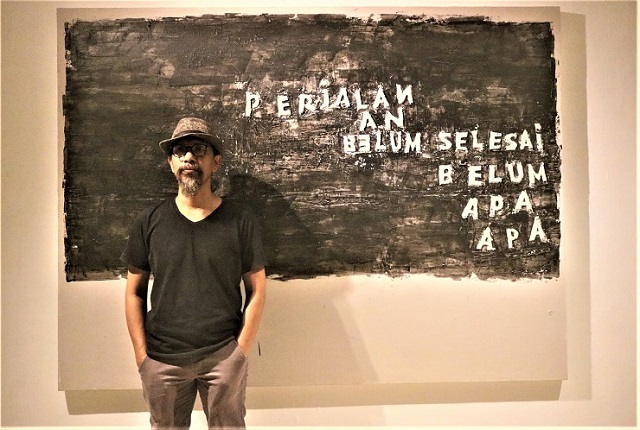 PERJALAN
AN
BELUM SELESAI
BELUM
APA
APA